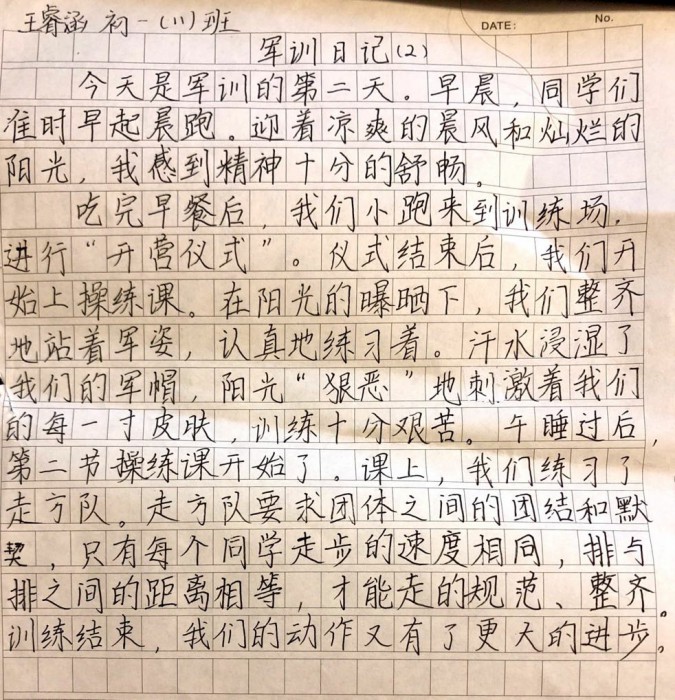 王睿涵 初一(11)班
DATE: No.
军训日记(2)
今天是军训的第二天。早晨,同学们
准时早起晨跑。迎着凉爽的晨风和灿烂的
阳光,我感到精神十分的舒畅。
吃完早餐后,我们小跑来到训练场,
进行“开营仪式”。仪式结束后,我们开
始上操练课。在阳光的曝晒下,我们整齐
地站着军姿,认真地练习着。汗水浸湿了
我们的军帽,阳光“狠恶”地刺激着我们
的每一寸皮肤,训练十分艰苦。午睡过后,
第二节操练课开始了。课上,我们练习了
走方队。走方队要求团体之间的团结和默
契,只有每个同学走步的速度相同,排与
排之间的距离相等,才能走的规范、整齐。
训练结束,我们的动作又有了更大的进步。